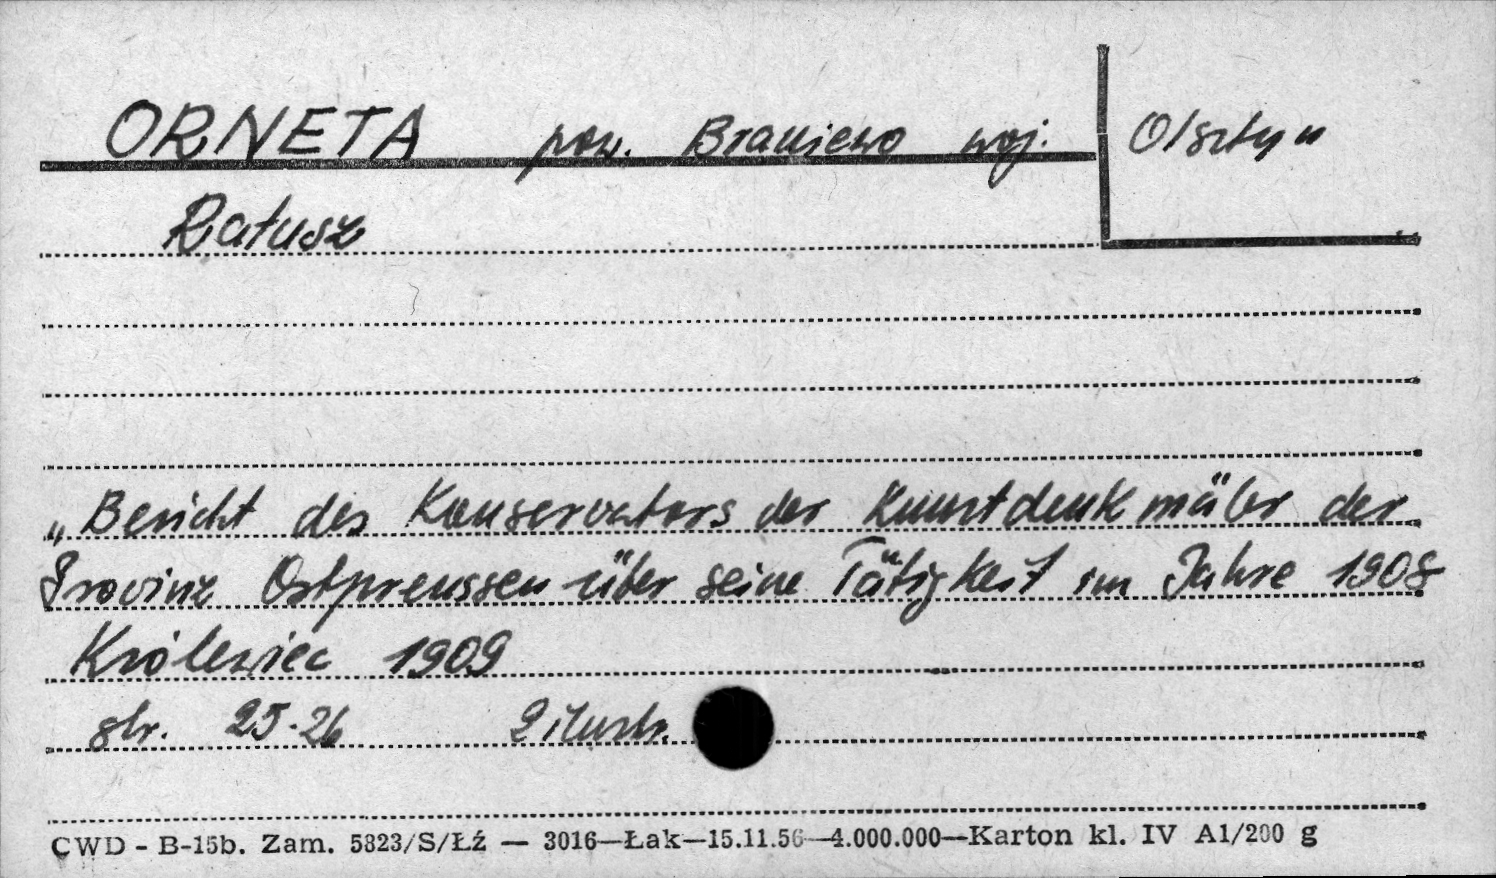 ORNETA pow. Braniewo woj. Olsztyn
Ratusz
„Bericht des Konservators der Kunstdenkmäler der
Provinz Ostpreussen über seine Tätigkeit im Jahre 1908
Królewiec 1909
str. 25-26 2 ilustr.
CWD - B-15b. Zam. 5823/S/Łź — 3016—Łak—15.11.56—4.000.000—Karton kl. IV A1/200 g